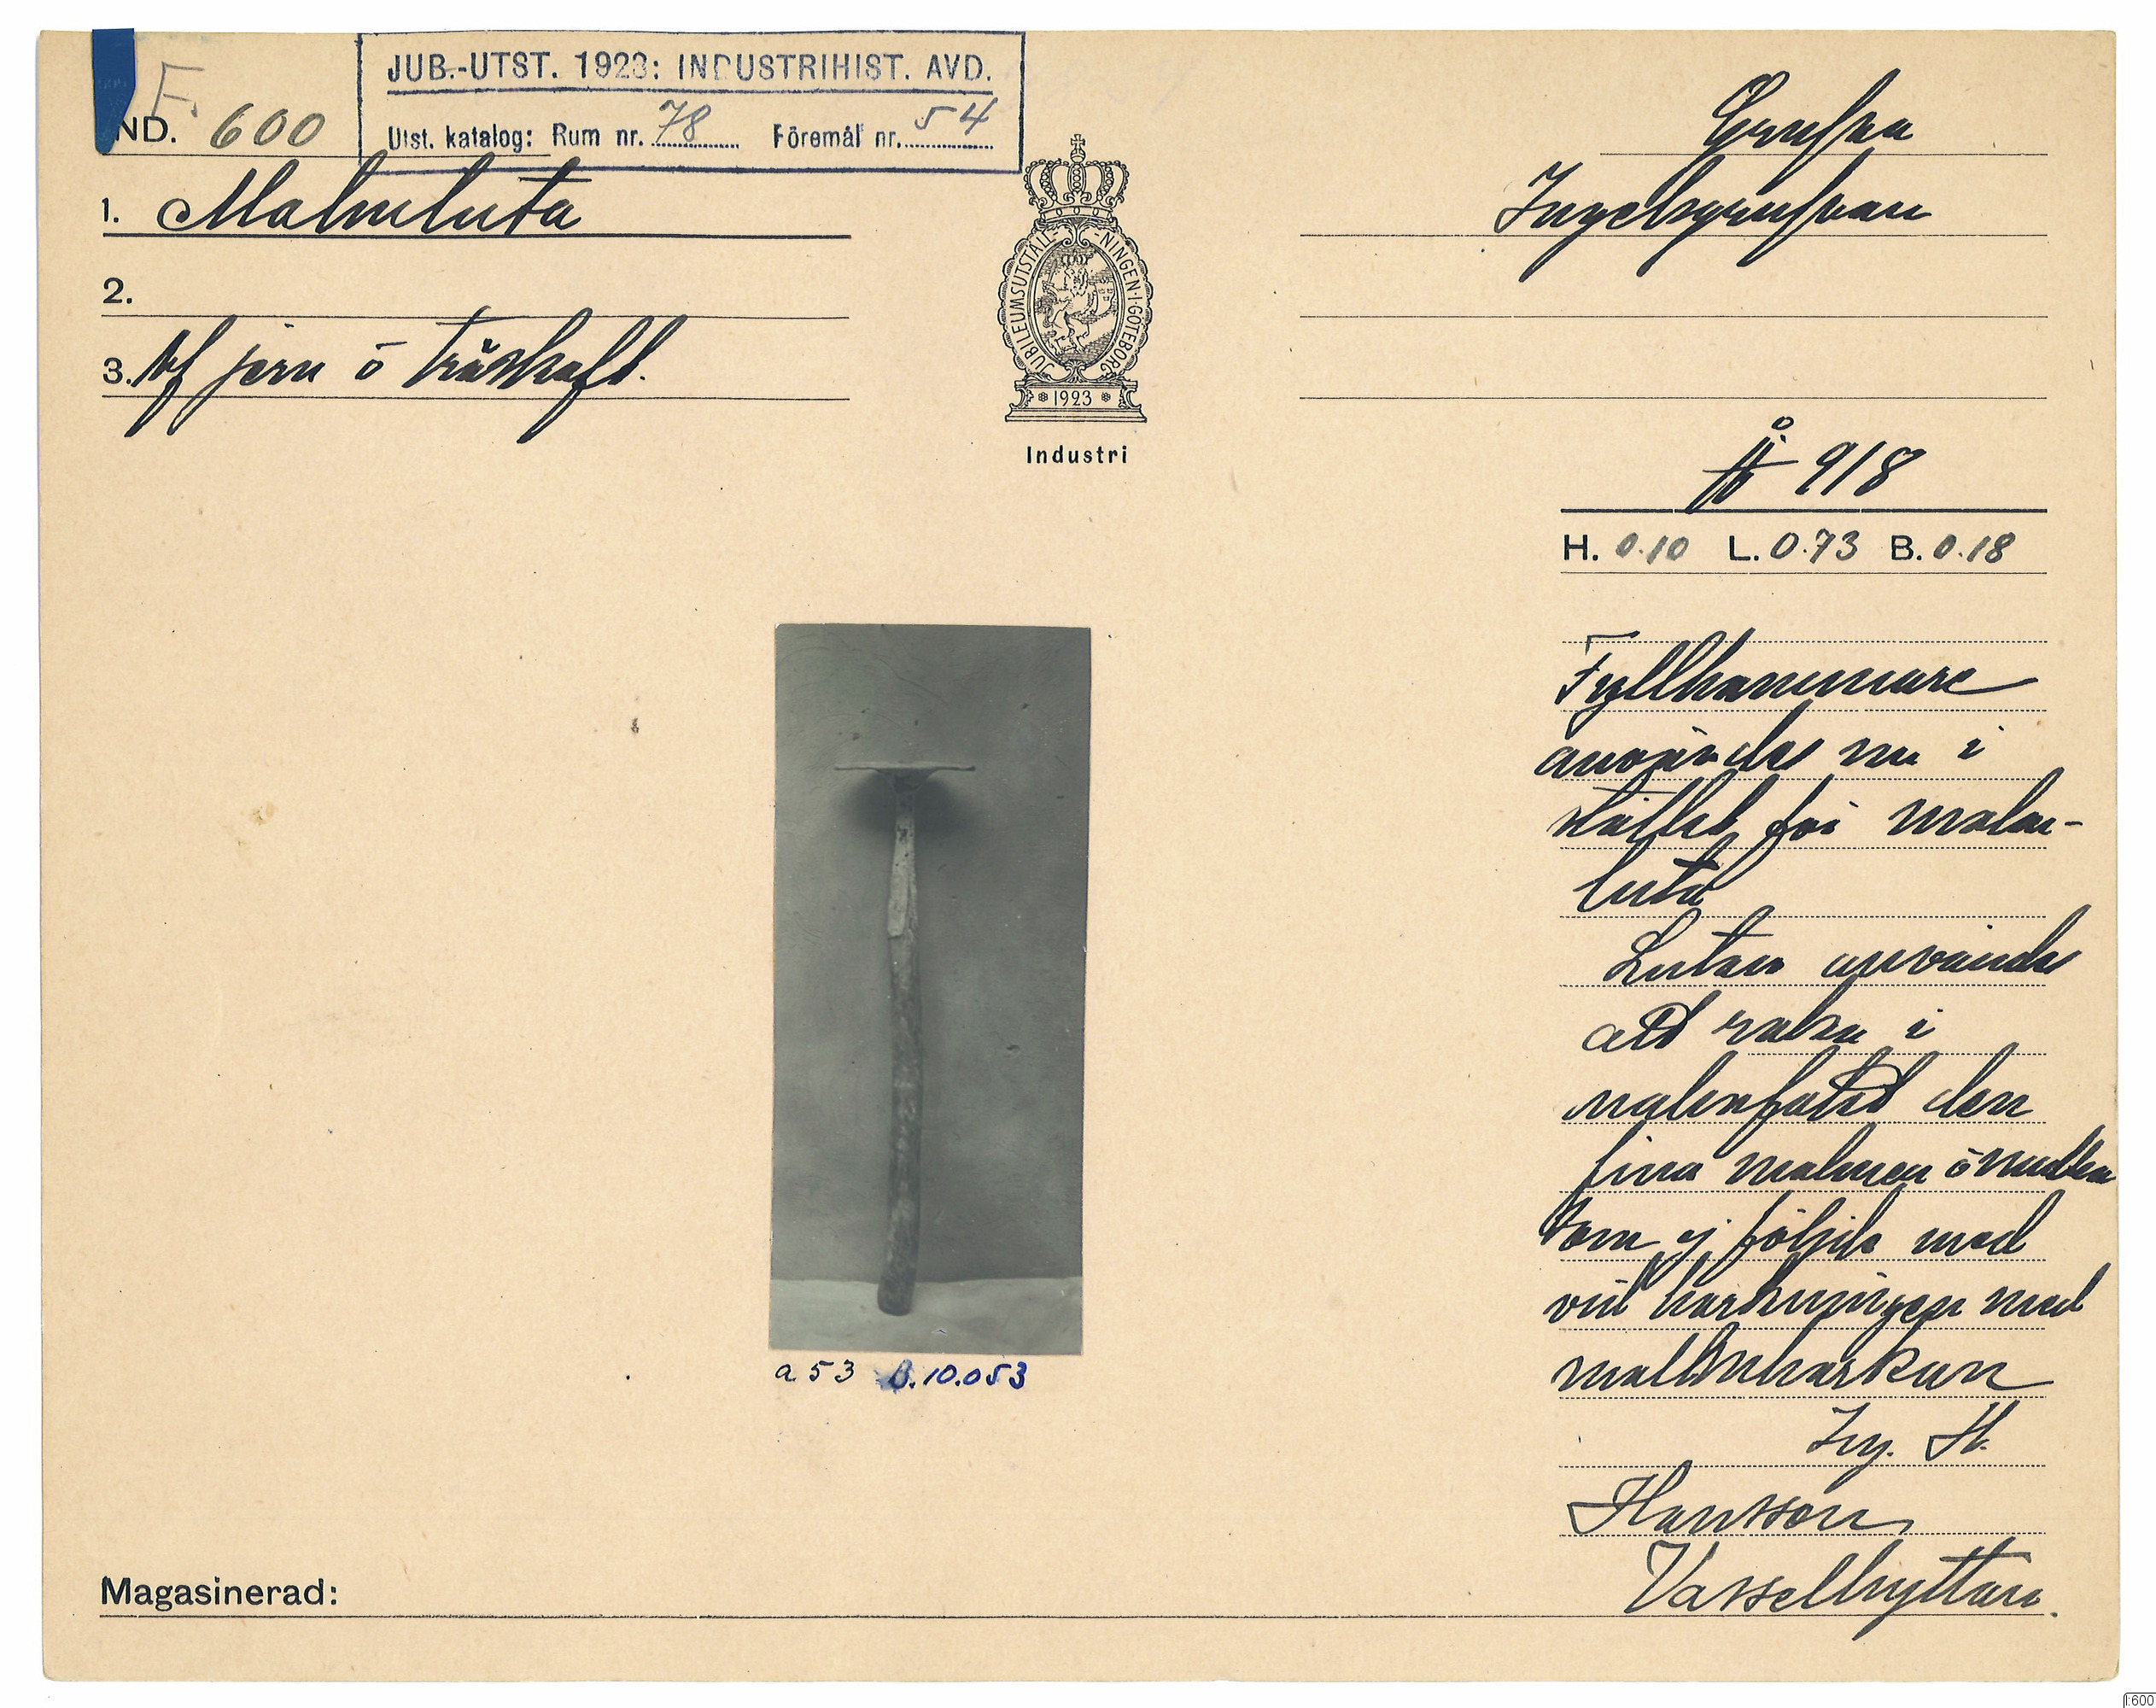 F.
JUB.-UTST. 1923: INDUSTRIHIST. AVD.
Utst. katalog: Rum nr. 78 Föremål nr. 54
ND. 600
1. Malmluta
2.
3. Af jern o träskaft.
JUBILEUMSUTSTÄLL-NINGEN·I·GÖTEBORG
1923
Industri
Grufva
Ingelsgrufvan
Å 918
H. 0.10 L. 0.73 B. 0.18
Fyllhammare
användes nu i
stället för malm-
luta
Lutan användes
att raka i
malmfatet den
fina malmen o
som ej följde med
vid harkningen med
malmharkan
Ing. H.
Hansson
Vasselhyttan.
a 53 B.10.053
Magasinerad:
I:600